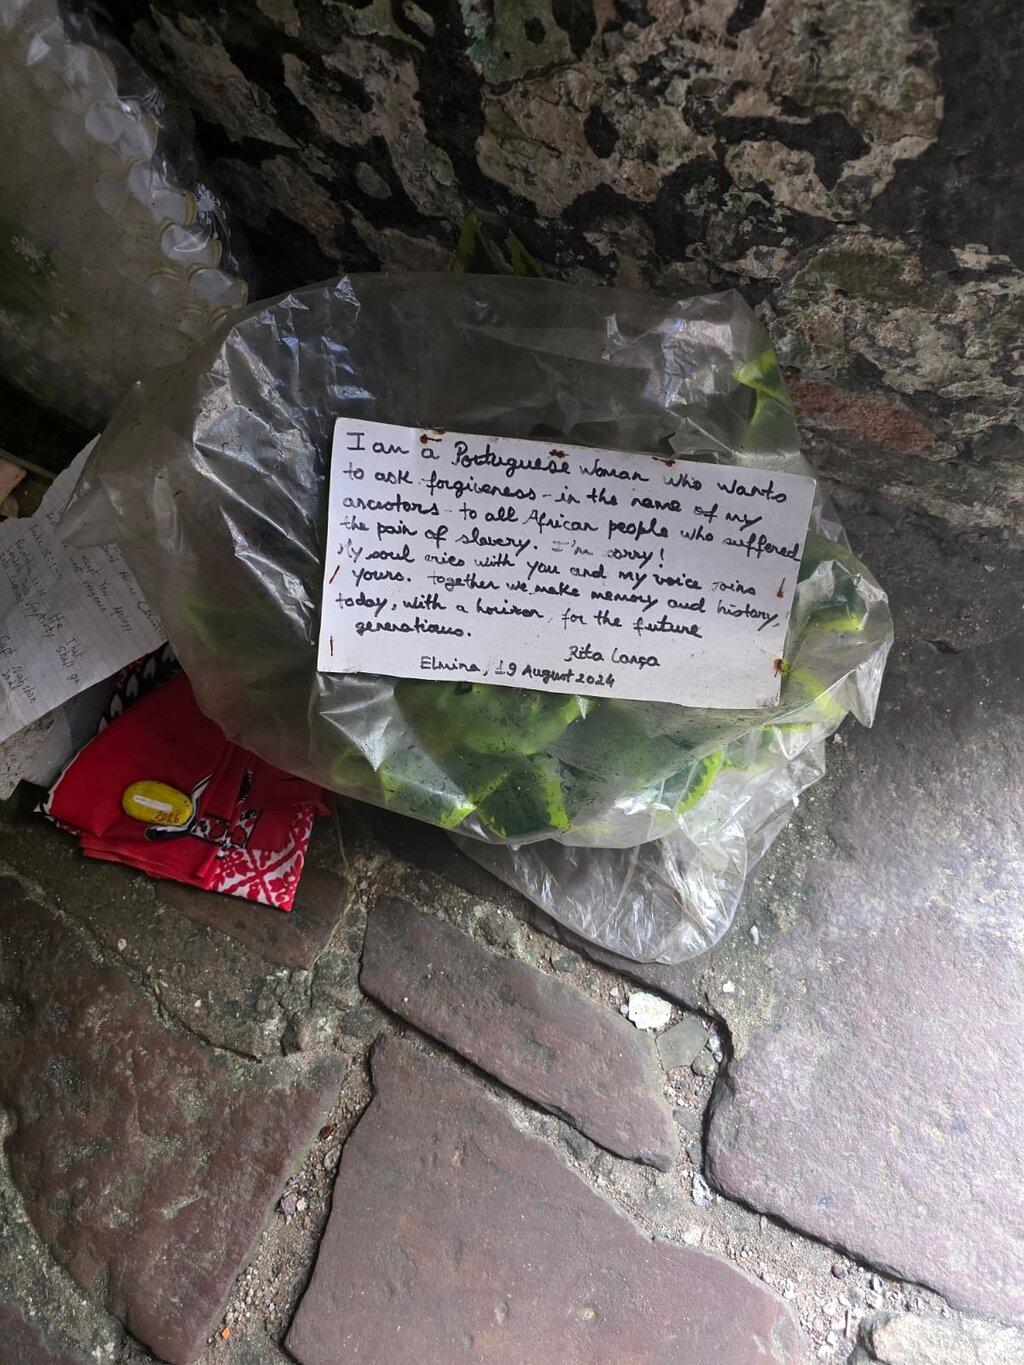 I am a Portuguese woman who wants
to ask forgiveness - in the name of my
ancestors - to all African people who suffered
the pain of slavery. I'm sorry!
My soul cries with you and my voice joins
yours. together we make memory and history,
today, with a horizon, for the future
generations.
Rita Lança
Elmina, 19 August 2024
2026
That
shall